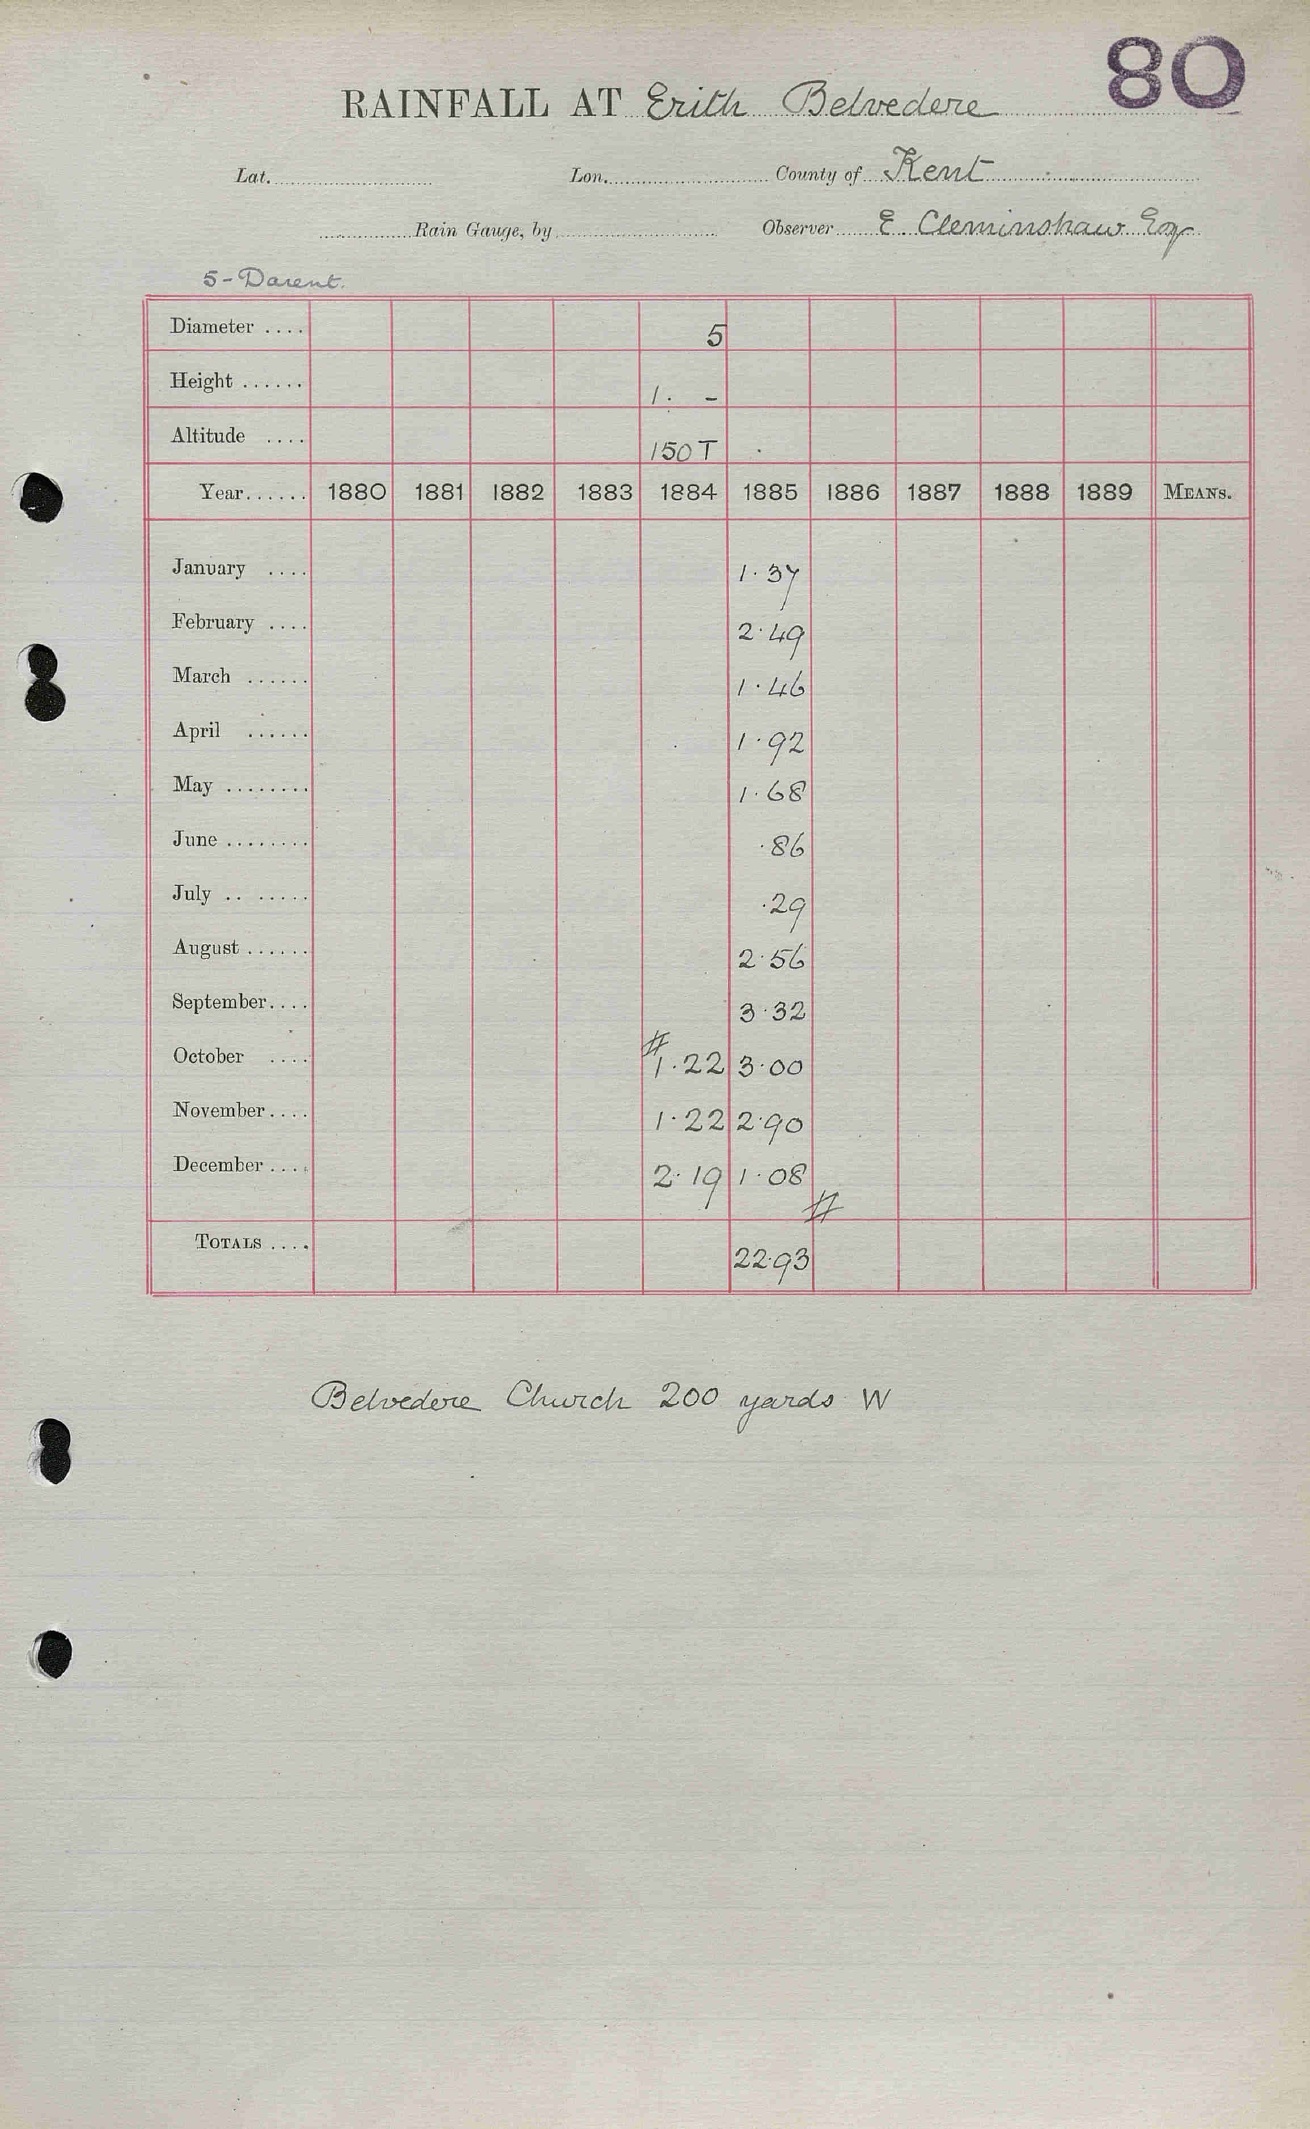 80
RAINFALL AT Erith Belvedere
Lat. Lon. County of Kent
Rain Gauge, by Observer E. Cleminshaw Esq
5-Darent.
Diameter .... 5
Height ...... 1. -
Altitude .... 150 T
Year...... 1880 1881 1882 1883 1884 1885 1886 1887 1888 1889 MEANS.
January .... 1.37
February .... 2.49
March ...... 1.46
April ...... 1.92
May ........ 1.68
June ........ .86
July .. ..... .29
August ...... 2.56
September.... 3.32
October .... # 1.22 3.00
November.... 1.22 2.90
December .... 2.19 1.08 #
TOTALS .... 22.93
Belvedere Church 200 yards W